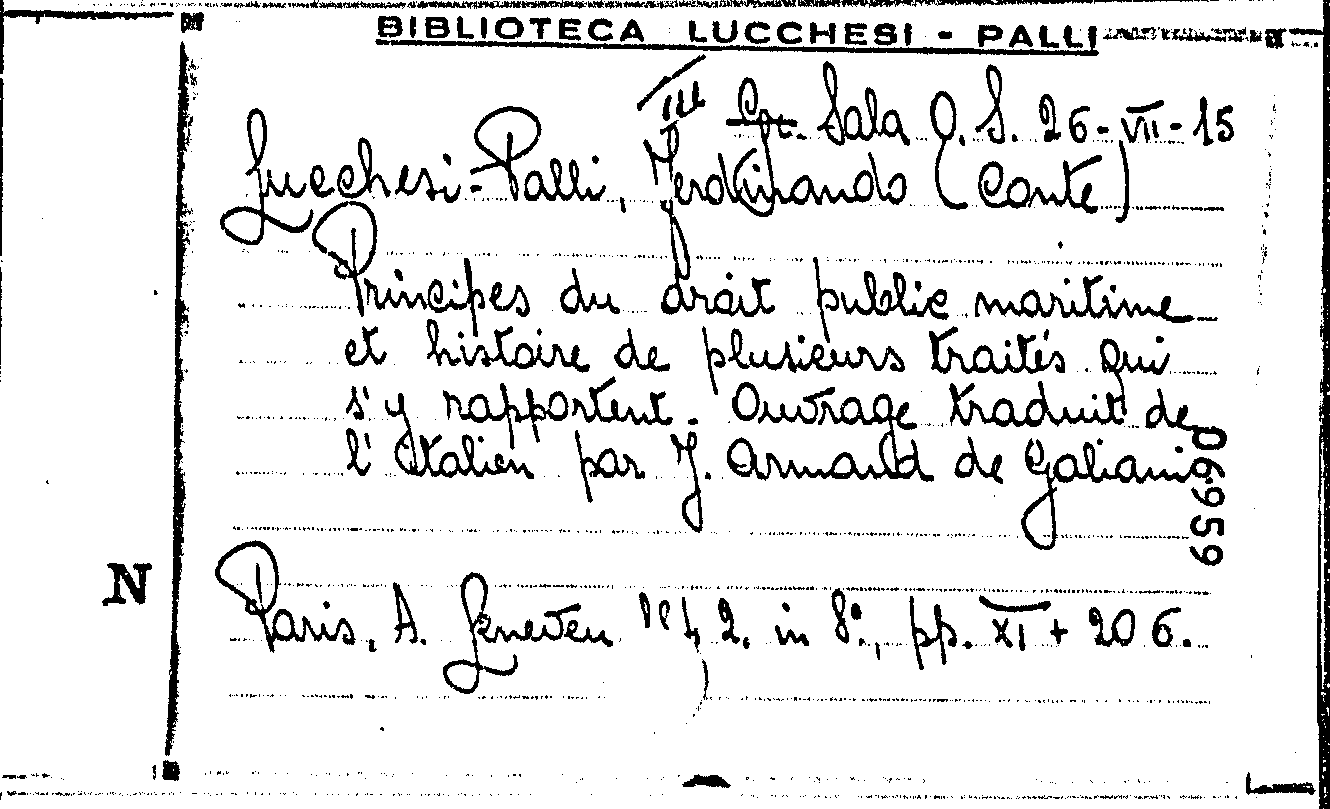 BIBLIOTECA LUCCHESI - PALLI
III Sala O. S. 26-VII-15
Lucchesi-Palli, Ferdinando (Conte)
Principes du droit public maritime
et histoire de plusieurs traités qui
s'y rapportent. Ouvrage traduit de
l'italien par J. Armand de Galiani
06959
N
Paris, A. 2. in 8º, pp. XI + 206.